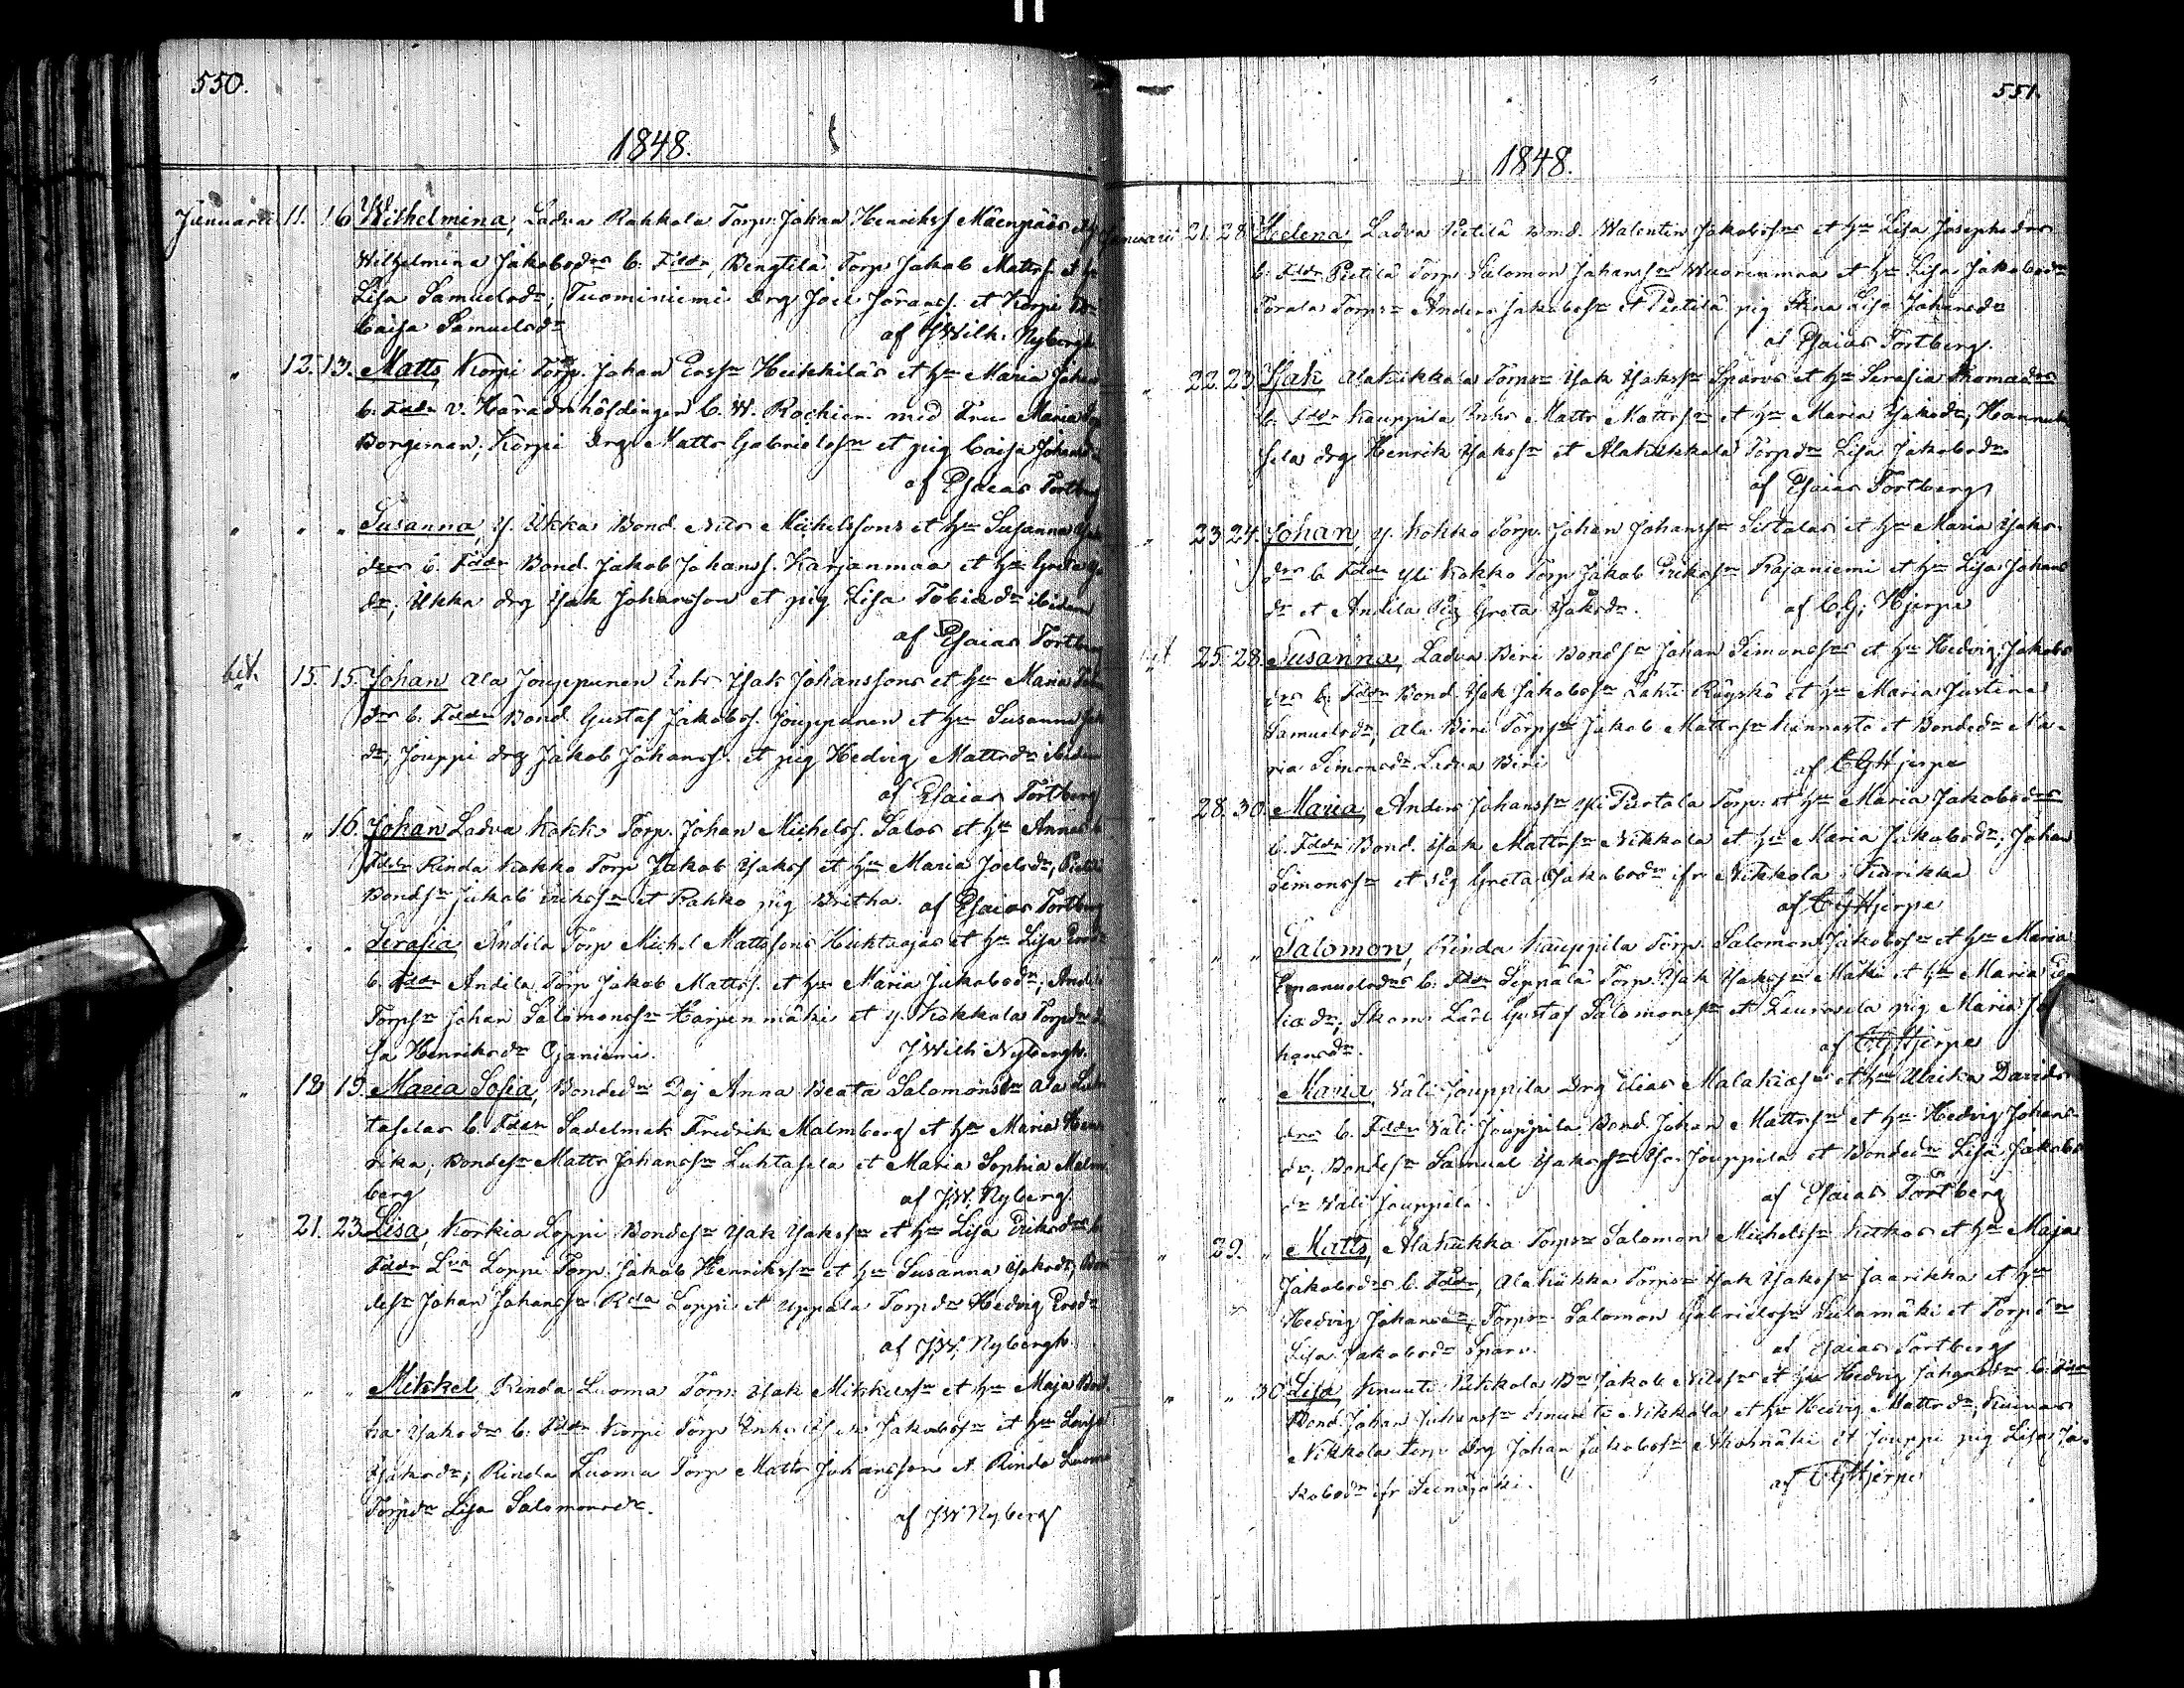 550.
1848.
Januarii 11. 16 Wilhelmina, Ladva Rahkola Torp: Johan Henrikss Mäenpääs et
Wilhelmina Jakobsdrs b: Fddr, Bengtilä Torp Jakob Mattss et
Lisa Samuelsdr; Tuominiemi drg Joel Göranss. et Korpi
Caisa Samuelsdr af J Wilh. Nybergh
" 12. 13. Matts, Korpi Torp. Johan Erssn Heikkiläs et hu Maria Johan
b. Fddr v. Häradshöfdingen C. W. Rochier med Fru Maria
Borgman; Korpi drg Matts Gabrielssn et pig Caisa Johansd
af Esaias Fortberg
" " " Susanna, Y. Ukka Bond. Nils Michelssons et hu Susanna
drs b. Fddr Bond. Jakob Johanss. Karjanmaa et hu Greta
dr; Ukka drg Isak Johansson et pig Lisa Tobiædr ibidem
af Esaias Fortberg
bet. 15. 15. Johan Ala Jouppunen Inhs Isak Johanssons et hu Maria
drs b. Fddr Bond. Gustaf Jakobs. Jouppunen et hu Susanna
dr, Jouppi drg Jakob Johanss. et pig Hedvig Mattsdr ibidem
af Esaias Fortberg
" " 16. Johan Ladva Kokko Torp. Johan Michelss. Salos et hu Annas
Fddr Rinda Kokko Torp Jakob Isakss et hu Maria Joelsdr,
Bondsn Jakob Erikssn et Rahko pig Britha. af Esaias Fortberg
" " " Serafia Andila Torp Michel Mattssons Huhtaojas et hu Lisa
b. Fddr Andila Torp Jakob Mattss. et hu Maria Jakobsdr; Andila
Torpsn Johan Salomonssn Harjunmäki et y. Kokkola Torpdr
sa Henriksdr Ojaniemi. J Wilh Nybergh.
" 18 19. Maria Sofia, Bondedrs Dej Anna Beata Salomonsdr Ala Luh
taselas b. Fddr Sadelmak Fredrik Malmberg et hu Maria Hen
rika; Bondesn Matts Johanssn Luhtasela et Maria Sophia Malm
berg af J.W. Nyberg.
" 21. 23. Lisa, Korkia Loppi Bondesn Isak Isakssn et hu Lisa Eriksdrs b
Fddr Loppi Torp. Jakob Henrikssn et hu Susanna Isaksdr, Bon
desn Johan Johanssn Rda Loppi et Uppala Torpdr Hedvig Ersdr
af J.W. Nybergh
" " " Mikkel Rinda Luoma Torp. Isak Mikkelssn et hu Maja
sa Isaksdrs b. Fddr Korpi Torp Inhs Jakobssn et hu Lovisa
Isaksdr; Rinda Luoma Torp Matts Johansson et Rinda Luoma
Torpdr Lisa Salomonsdr. af J W Nyberg
551.
1848.
Januarii 21. 28. Helena Ladva Pietilä Bond. Walentin Jakobssns et hu Lisa Josephsdrs
b. Fddr Pietilä Torp Salomon Johanssn Wuorenmaa et hu Lisa Jakobsdr
Torala Torpsn Anders Jakobssn et Pietilä pig Anna Lisa Johansdr
af Esaias Fortberg.
" 22. 23. Isak, Alahukkala Torpsn Isak Isakssn Sparvs et hu Serafia Thomædrs
b. Fddr Kauppila Inhs Matts Mattssn et hu Maria Isaksdr; Hannuk
sela drg Henrik Isakssn et Alahukkala Torpdr Lisa Jakobsdr
af Esaias Fortberg
" 23. 24. Johan, Y. Kokko Torp. Johan Johanssn Sertalas et hu Maria Isaks
drs b Fddr Yli Kokko Torp Jakob Erikssn Rajaniemi et hu Lisa Johans
dr et Andila Pig Greta Isaksdr. af C.G. Hjerpe
25. 28. Susanna, Ladva Biri Bondsn Johan Simonssns et hu Hedvig Jakobs
drs b. Fddr Bond. Isak Jakobssn Lahti Räyskö et hu Maria Justina
Samuelsdr, Ala Biri Torpsn Jakob Mattssn Kunnasto et Bondedr Ma-
ria Simonsdr Ladva Biri af CGHjerpe
" 28. 30. Maria, Anders Johanssn Yli Pirtala Torp: et hu Maria Jakobsdrs
b. Fddr Bond. Isak Mattssn Nikkola et hu Maria Jakobsdr; Johan
Simonssn et Pig Greta Jakobsdr ifr Nikkola i Kurikka
af CGHjerpe
" " " Salomon, Rinda Kauppila Torp. Salomon Jakobssn et hu Maria
Emanuelsdrs b. Fddr Seppälä Torp. Isak Isakssn Mäki et hu Maria
liædr; Skom. Lärl Gustaf Salomonssn et Leurosela pig Maria
hansdr. af CGHjerpe
" " Maria Väli Jouppila Drg Elias Malakiæssn et hu Ulrika Davids
drs b. Fddr Väli Jouppila Bond. Johan Mattssn et hu Hedvig Johans
dr, Bondesn Samuel Isakssn Iso Jouppila et Bondedr Lisa Jakobs
dr Väli Jouppila. af Esaias Fortberg
" 29. " Matts, Alahukka Torpsn Salomon Michelssn Kitkos et hu Maja
Jakobsdrs b. Fddr, Alahukka Torpsn Isak Isakssn Jaarikka et hu
Hedvig Johansdr, Torpsn Salomon Gabrielssn Sulamäki et Torpdr
Lisa Jakobsdr Sparv. af Esaias Fortberg
" " 30 Lisa, Knuuti Nikkola Jakob Nilssns et hu Hedvig Johansdrs b: Fddr
Bond. Johan Johanssn Knuuti Nikkola et hu Hedvig Mattsdr, Kuivas
Nikkola Torp Drg Johan Jakobssn Ahomäki et Jouppi pig Lisa Ja-
kobsdr ifr Seinäjoki. af CGHjerpe